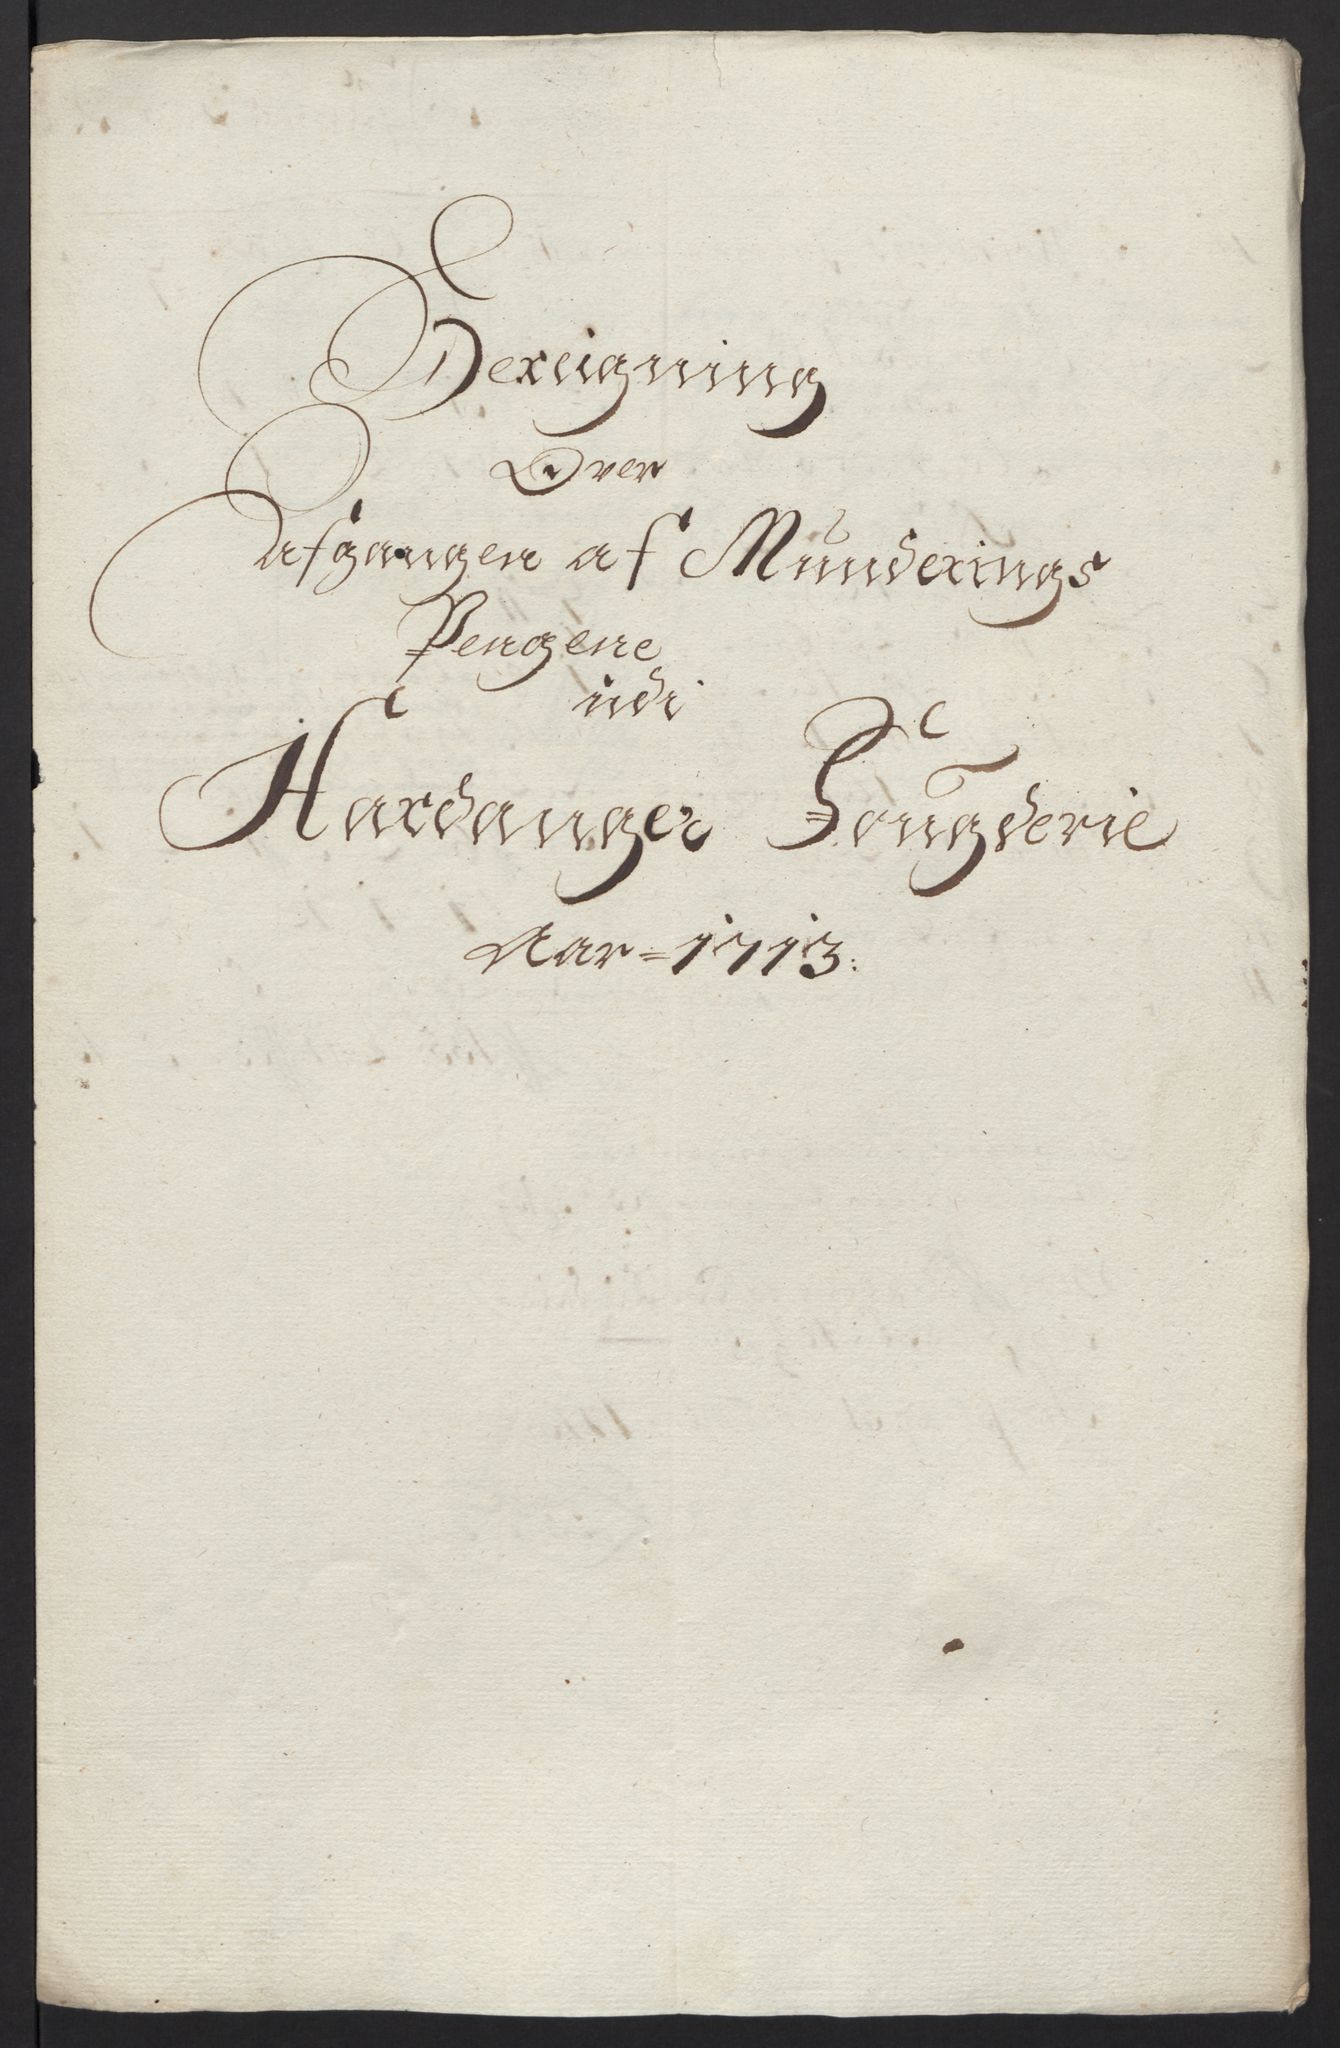 Dereigning
Over
Afgangen af Munderings
Pengene
udi
Hardanger Fougderie
Aar=1713: